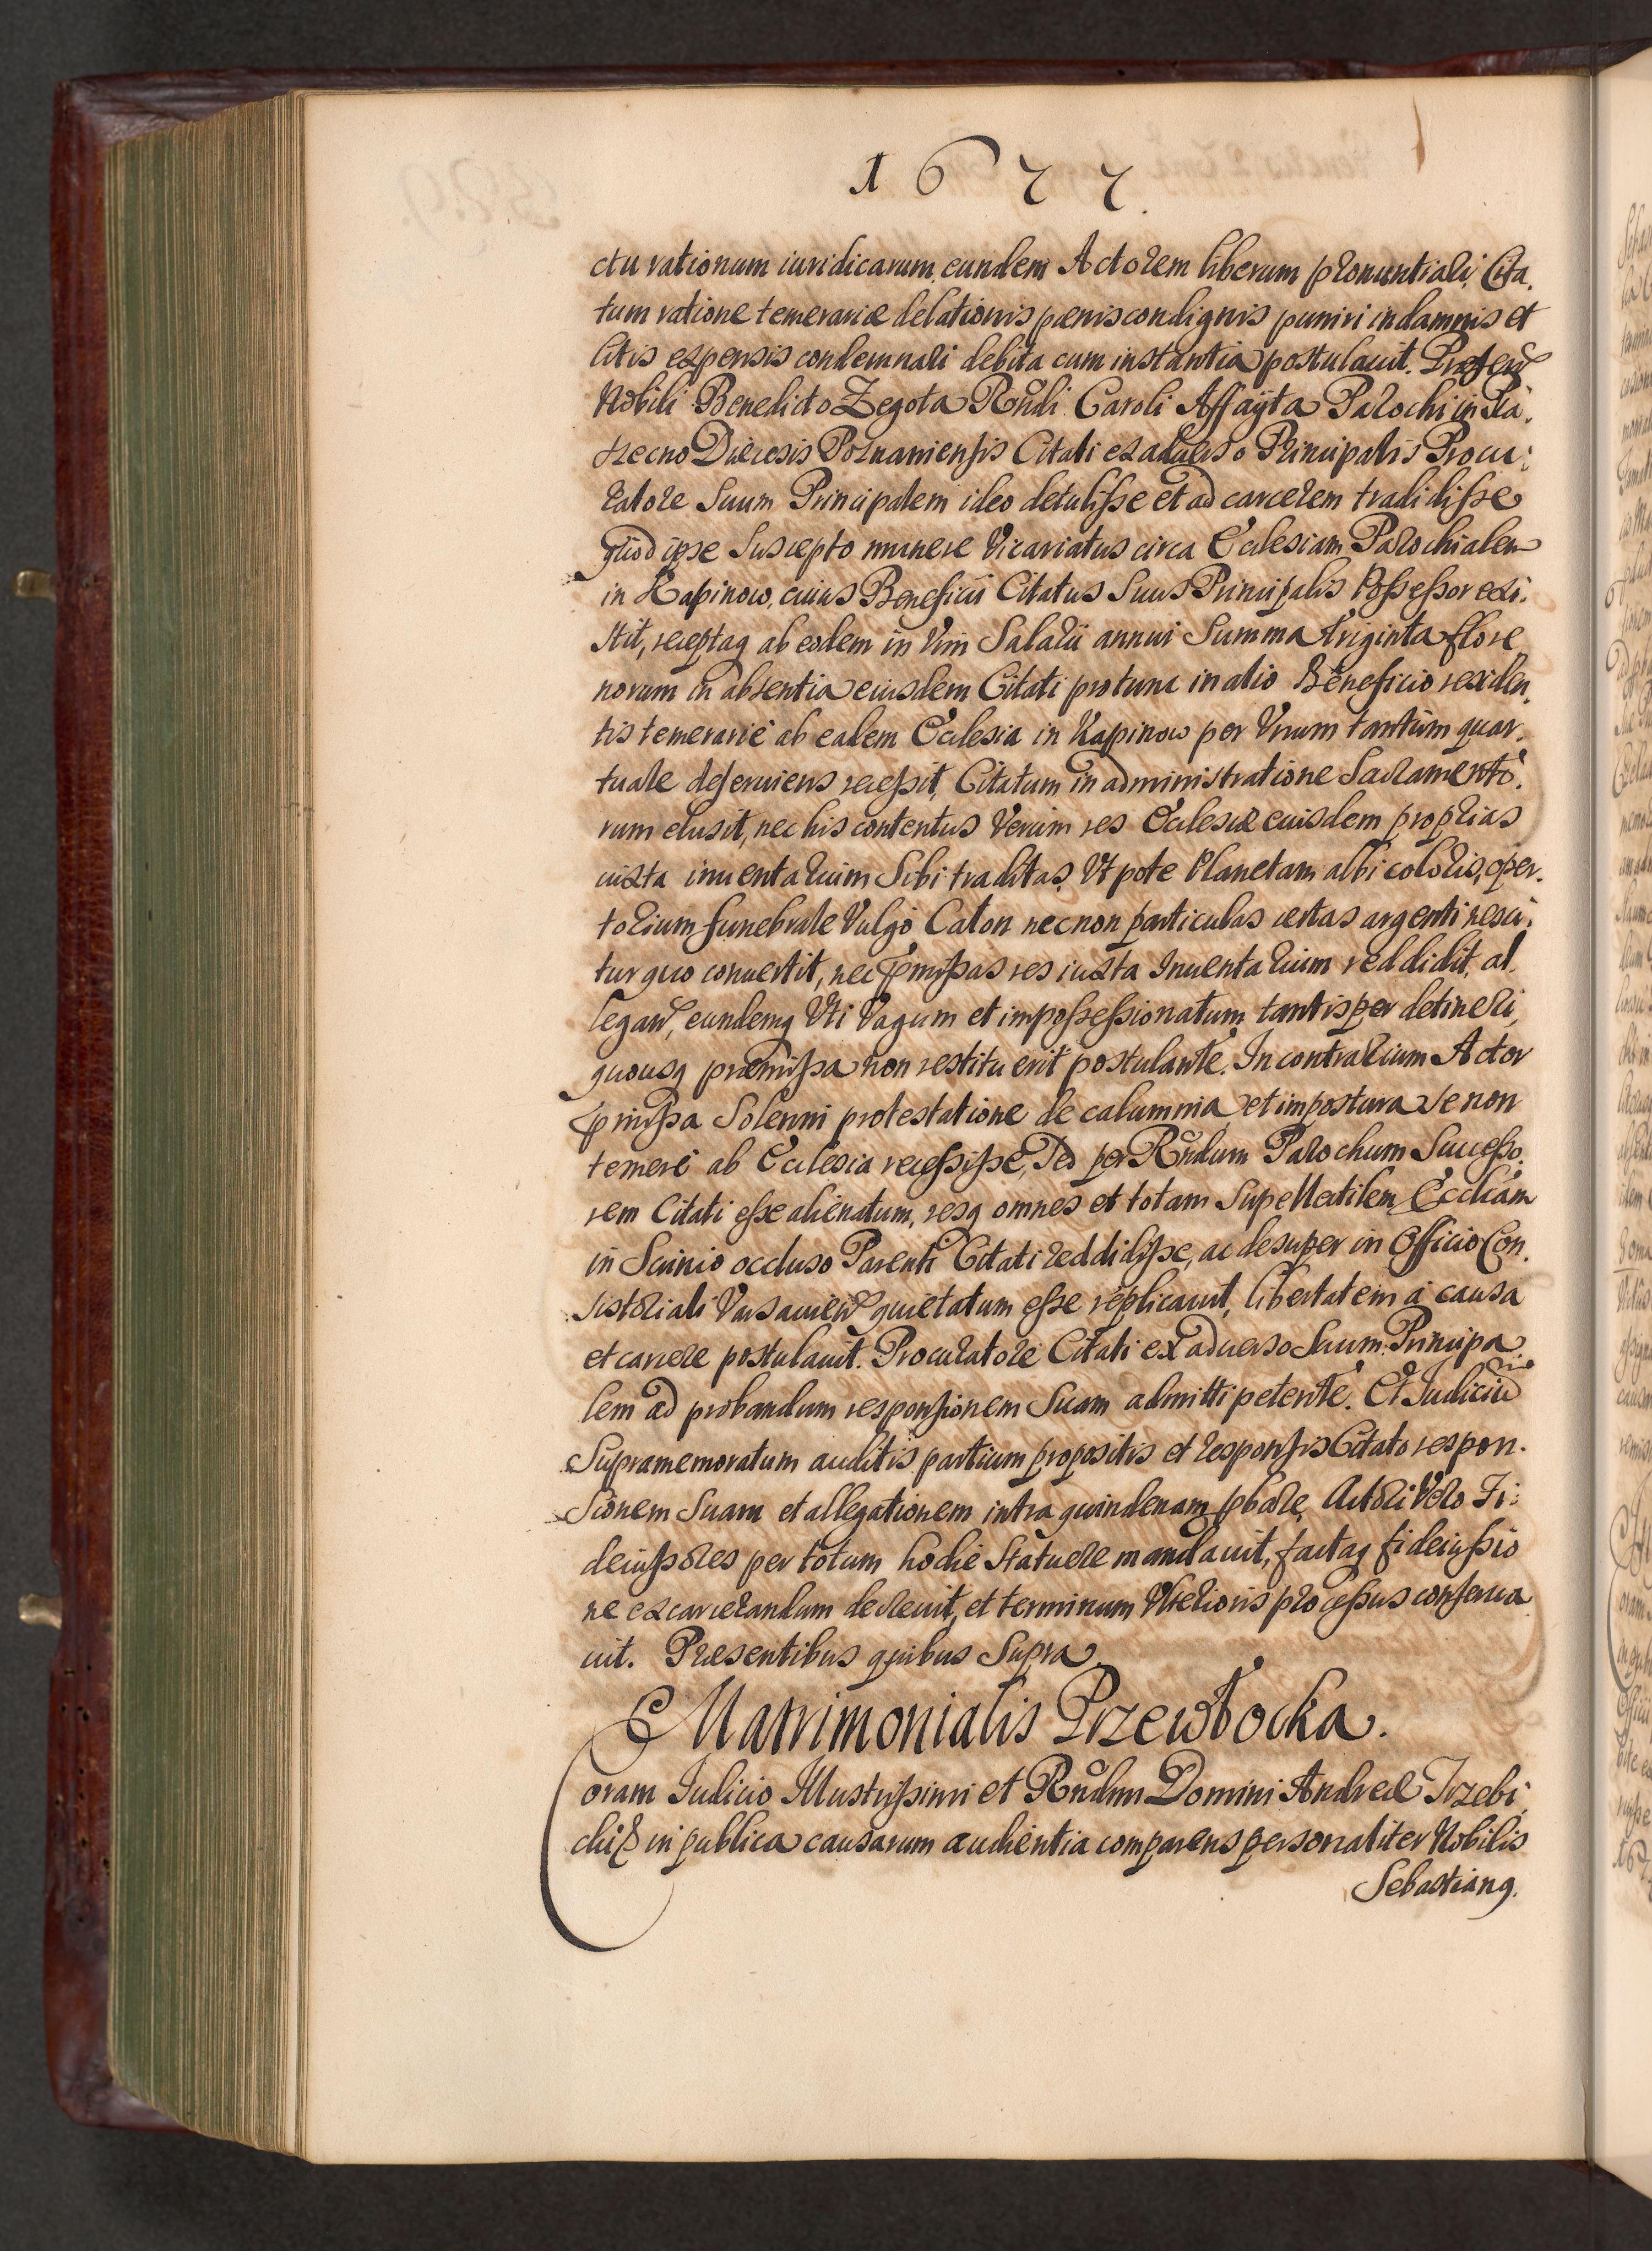 1677.
ctu rationum iuridicarum eundem Actorem liberum pronuntiari, Cita.
tum ratione temerariæ delationis pænis condignis puniri in damnis et
litis expensis condemnari debita cum instantia postulauit. Præsen
Nobili Benedicto Zegota Rndi Caroli Affayta Parochi in Pia.
secno Diæcesis Posnaniensis Citati ex aduerso Principalis Procu:
ratore Suum Principalem ideo detulisse et ad carcerem tradidisse
quod ipse Suscepto munere Vicariatus circa Ecclesiam Parochialem
in Kapinow, cuius Beneficii Citatus Suus Principalis Possessor exi.
stit, receptaq ab eodem in Vim Salarii annui Summa triginta flore
norum in absentia eiusdem Citati protunc in alio Beneficio residen.
tis temerarie ab eadem Ecclesia in Kapinow per Vnum tantum quar.
tuale deseruiens recessit, Citatum in administratione Sacramento.
rum elusit, nec his contentus Verum res Ecclesiæ eiusdem proprias
iuxta inuentarium Sibi traditas, Vt pote Planetam albi coloris, oper.
torium funebrale Vulgo Caton necnon particulas certas argenti nesci.
tur quo conuertit, nec pmissas res iuxta Inuentarium reddidit, al
legan, eundemq Vti Vagum et impossessionatum tantisper detineri,
quousq præmissa non restituerit postulante. In contrarium Actor
pmissa Solenni protestatione de calumnia et impostura se non
temere ab Ecclesia recessisse, Sed per Rndum Parochum Successo.
rem Citati esse alienatum, resq omnes et totam Supellectilem Eccliam
in Scrinio occluso Parenti Citati reddidisse, ac desuper in Officio Con.
sistoriali Varsauien quietatum esse replicauit, libertatem a causa
et carcere postulauit. Procuratore Citati ex aduerso Suum Principa
lem ad probandum responsionem Suam admitti petente. Et Iudiciu
Supramemoratum auditis partium propositis et responsis Citato respon.
sionem Suam et allegationem intra quindenam pbare, Actori Vero Fi:
deiussores per totum hodie Statuere mandauit, factaq fideiussio
ne excarcerandum decreuit, et terminum Vlterioris processus conserua
uit. Præsentibus quibus Supra
Matrimonialis Przewłocka.
Coram Iudicio Illustrissimi et Rndmi Domini Andreæ Trzebi,
cki & in publica causarum audientia comparens personaliter Nobilis
Sebastianq.